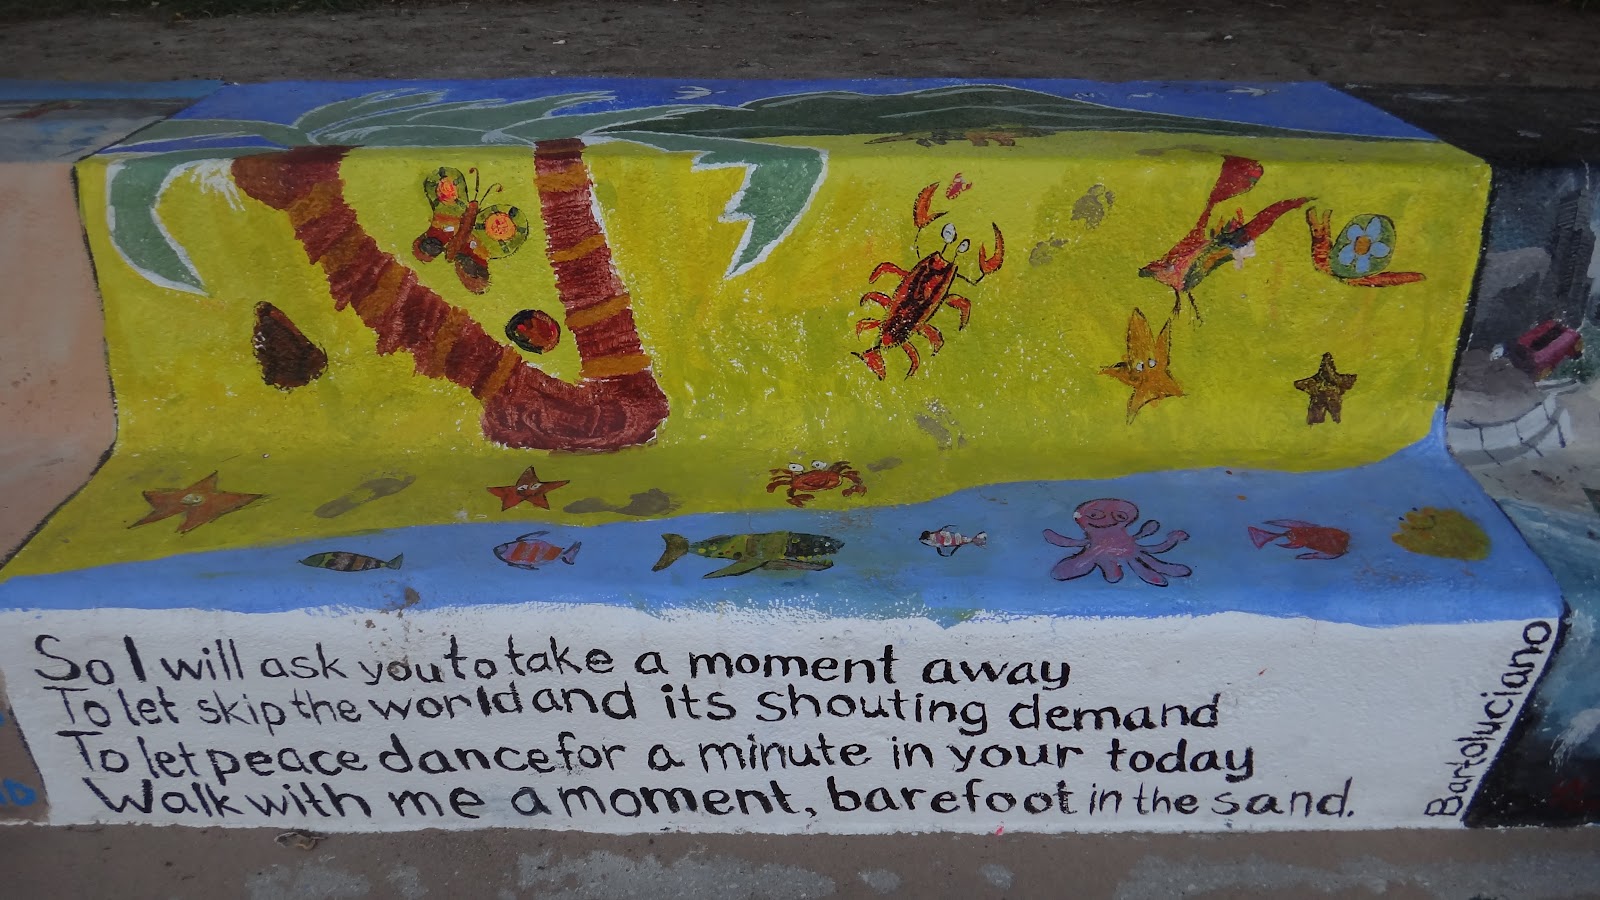 So I will ask you to take a moment away
To let skip the world and its shouting demand
To let peace dance for a minute in your today
Walk with me a moment, barefoot in the sand.
Bartoluciano